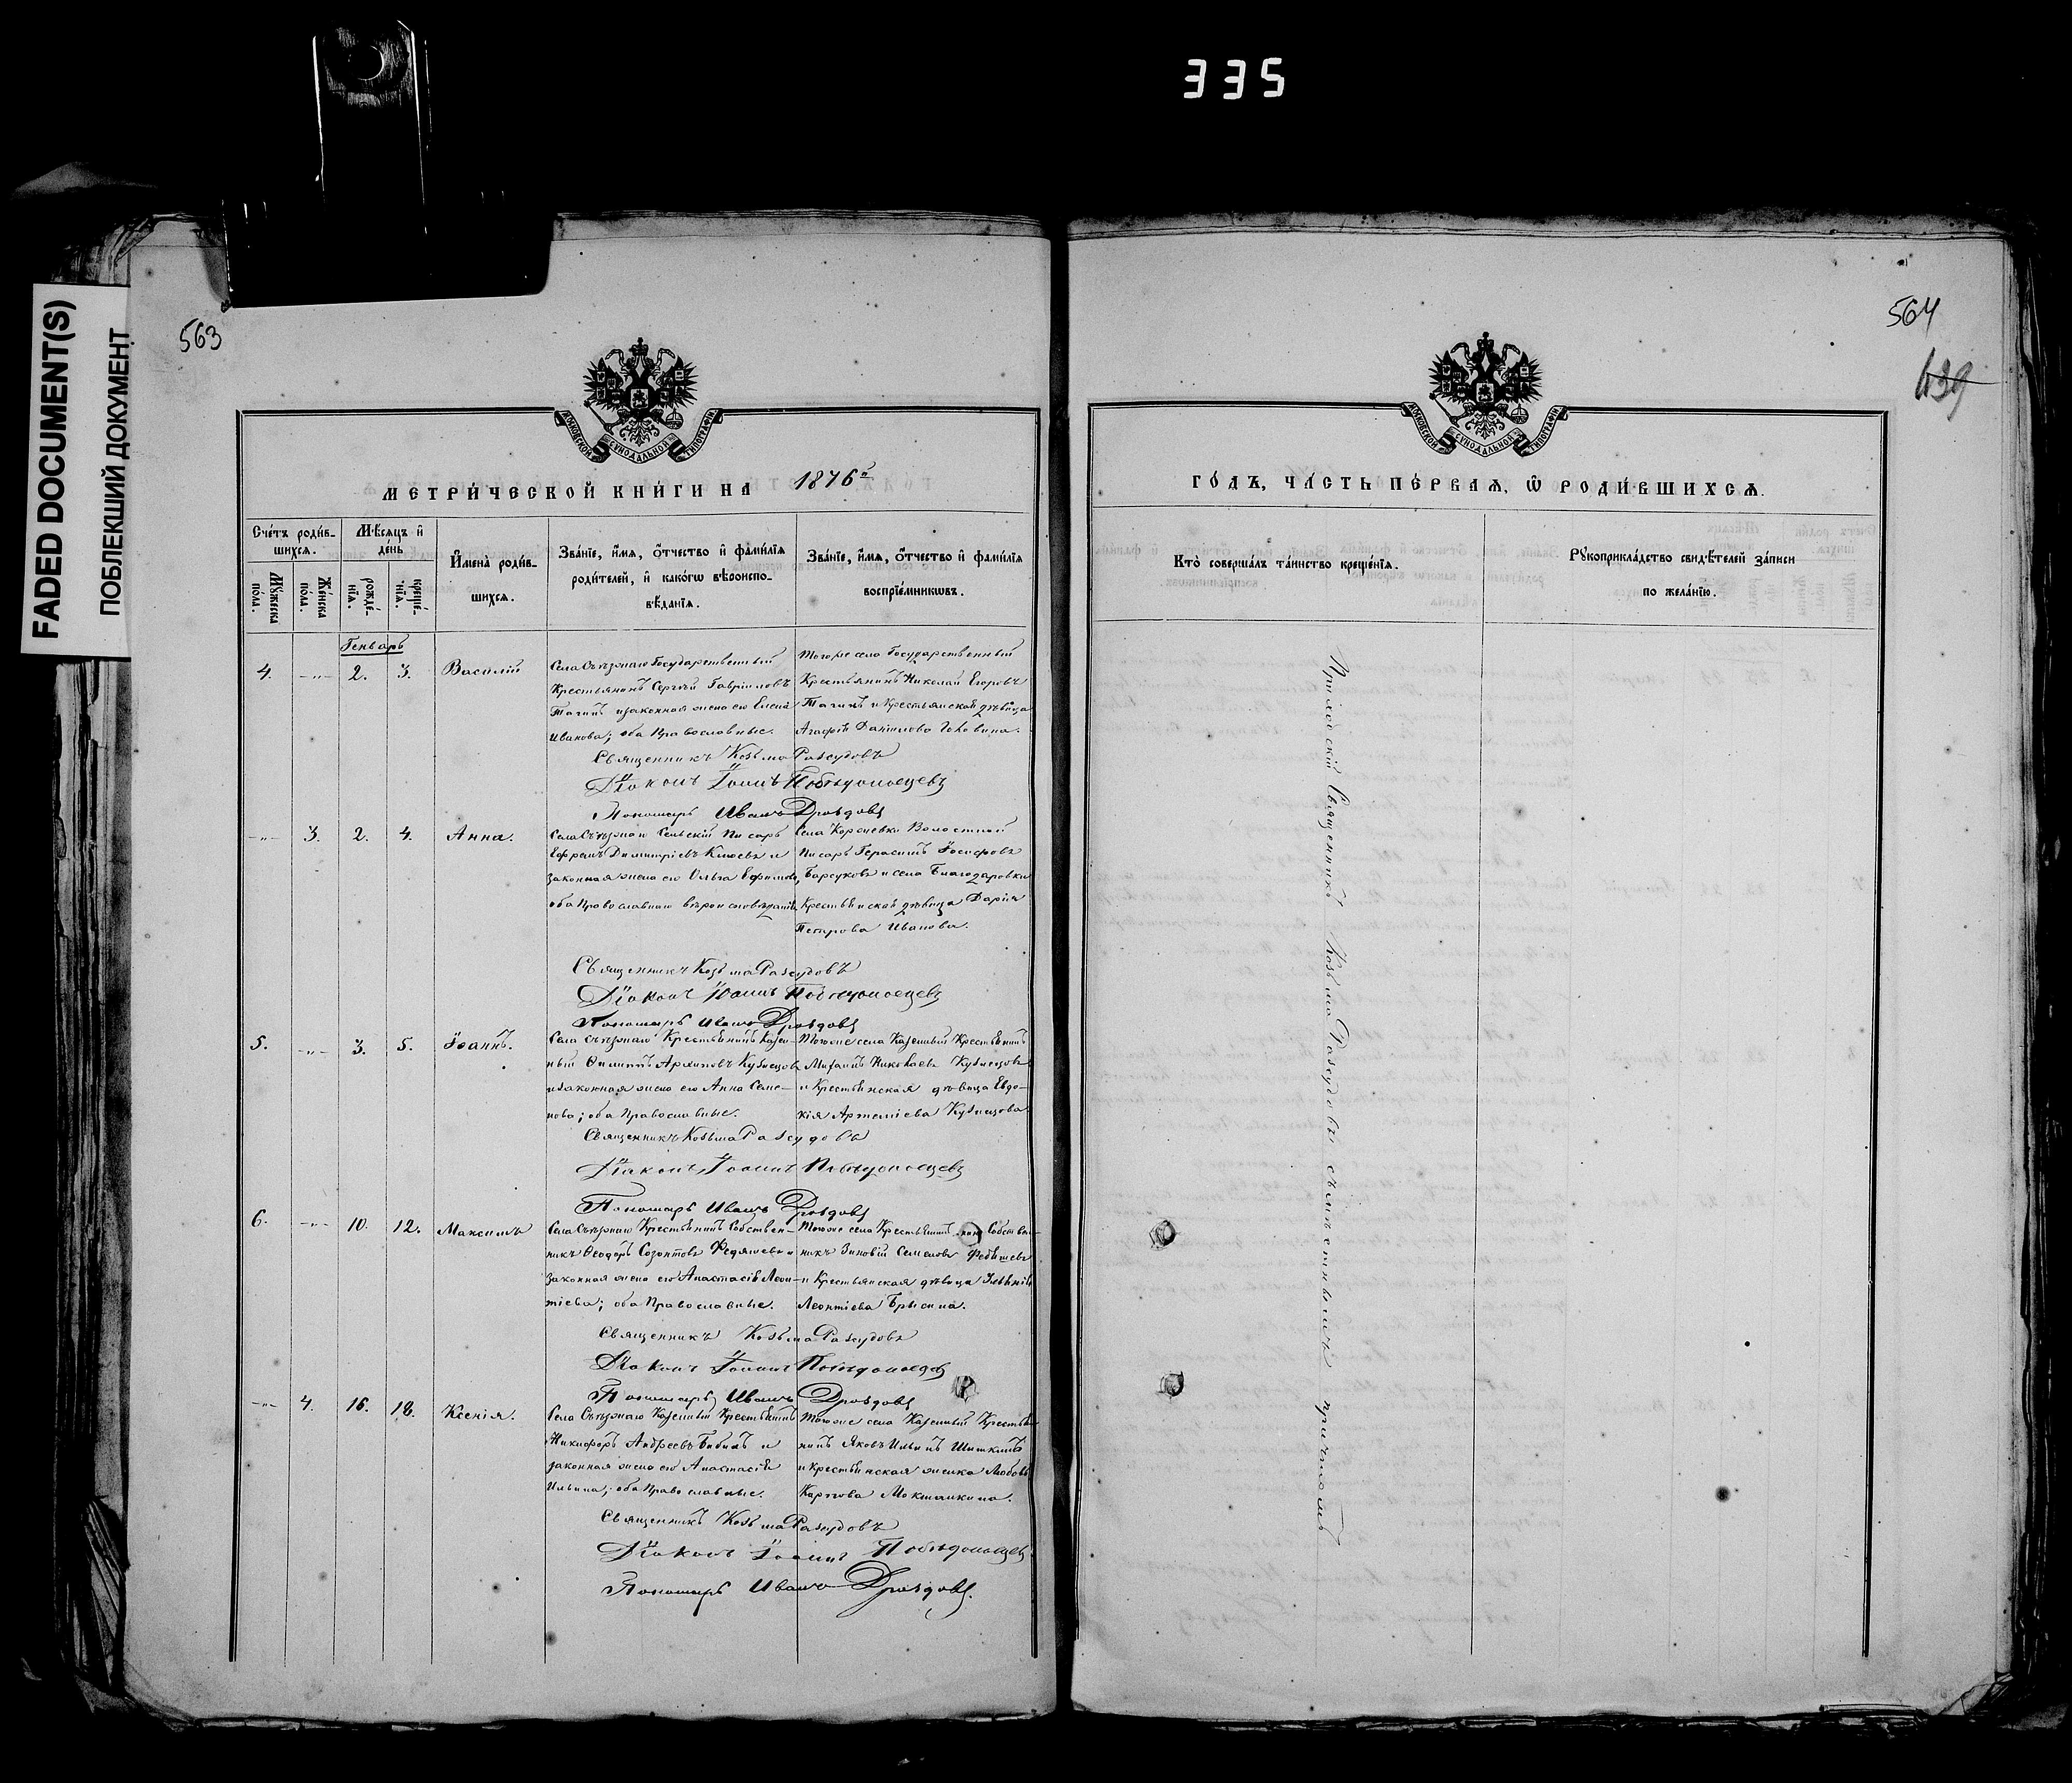 335
FADED DOCUMENT(S)
ПОБЛЕКШИЙ ДОКУМЕНТ
563
МОСКОВСКОЙ СУНОДАЛЬНОЙ ТИПОГРАФІИ
МЕТРИ́ЧЕСКОЙ КНИ́ГИ НА 1876 г.
Сче́тъ роди́в-
шихся.
Мѣ́сяцъ и҆
день
И҆мена̀ роди́в-
шихся.
Зва́нїе, и҆́мя, ѻ҆́тчество и҆ фами́лїя
роди́телей, и҆ како́гѡ вѣроиспо-
вѣ́данїя.
Зва́нїе, и҆́мя, ѻ҆́тчество и҆ фами́лїя
воспрїе́мникѡвъ.
Мꙋ́жеска
по́ла.
Же́нска
по́ла.
рожде́-
нїя.
креще́-
нїя.
Генварь
4. -„- 2. 3. Василій
Села Съѣзжаго Государственный
Крестьянинъ Сергѣй Гавріиловъ
изаконная жена его Елена
Иванова; оба Православные.
Тогоже села Государственный
Крестьянинъ Николай Егоровъ
и Крестьянская дѣвица
Агафія Данилова
Священникъ Козьма Разсудовъ
Діаконъ Іоаннъ Побѣдоносцевъ
Пономарь Иванъ Дроздовъ
-„- 3. 2. 4. Анна.
Села Съѣзжаго Сельскій Писарь
Ефремъ Димитріевъ Клюевъ и
законная жена его Ольга Ефимова,
оба Православнаго вѣроисповѣданія
Села Корнеевки Волостной
Писарь Герасимъ Іосифовъ
Барсуковъ и села Благодаровки
Крестьянская дѣвица Дарія
Петрова Иванова.
Священникъ Козьма Разсудовъ
Діаконъ Іоаннъ Побѣдоносцевъ
Пономарь Иванъ Дроздовъ
5. -„- 3. 5. Іоаннъ.
Села Съѣзжаго Крестьянинъ Казен-
ный Филиппъ Архиповъ Кузнецовъ
изаконная жена его Анна Семе-
нова; оба Православные.
Тогоже села Казенный Крестьянинъ
Михаилъ Николаевъ Кузнецовъ
и Крестьянская дѣвица Евдо-
кія Артеміева Кузнецова.
Священникъ Козьма Разсудовъ
Діаконъ Іоаннъ Побѣдоносцевъ
Пономарь Иванъ Дроздовъ
6. -„- 10. 12. Максимъ
Села Съѣзжаго Крестьянинъ Собствен-
никъ Ѳеодоръ Созонтовъ Федяшевъ и
законная жена его Анастасія Леон-
тіева; оба Православные.
Тогоже села Крестьянинъ Собствен-
никъ Зиновій Семеновъ Федяшевъ
и Крестьянская дѣвица
Леонтіева
Священникъ Козьма Разсудовъ
Діаконъ Іоаннъ Побѣдоносцевъ
Пономарь Иванъ Дроздовъ
-„- 4. 16. 18. Ксенія.
Села Съѣзжаго Казенный Крестьянинъ
Никифоръ Андреевъ Бабинъ и
законная жена его Анастасія
Ильина; оба Православные.
Тогоже села Казенный Крестья-
нинъ Яковъ Ильинъ Шишкинъ
и Крестьянская женка Любовь
Карпова
Священникъ Козьма Разсудовъ
Діаконъ Іоаннъ Побѣдоносцевъ
Пономарь Иванъ Дроздовъ.
564
439
МОСКОВСКОЙ СУНОДАЛЬНОЙ ТИПОГРАФІИ
ГО́ДЪ, ЧА́СТЬ ПЕ́РВАЯ, Ѽ РОДИ́ВШИХСЯ.
Кто̀ соверша́лъ та́инство креще́нїя.
Рꙋкоприкла́дство свидѣ́телей за́писи
по жела́нїю.
Приходскій Священникъ Козьма Разсудовъ съ мѣстнымъ причтомъ